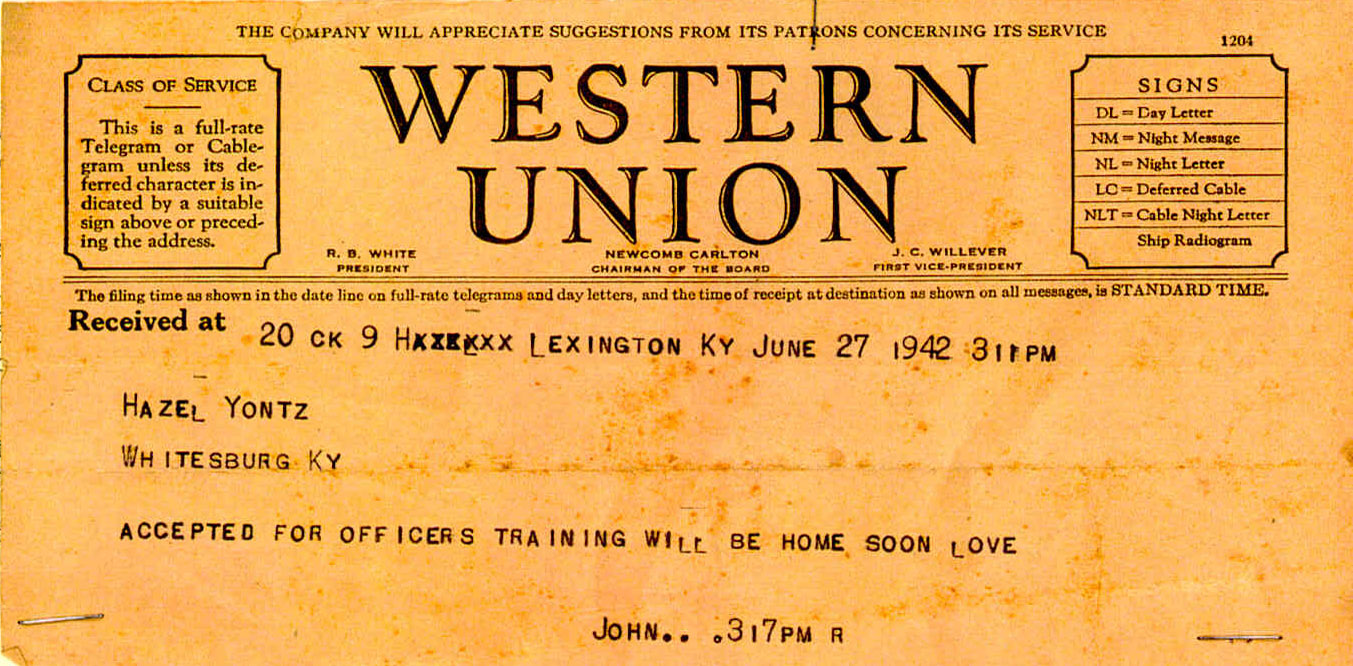 THE COMPANY WILL APPRECIATE SUGGESTIONS FROM ITS PATRONS CONCERNING ITS SERVICE
1204
CLASS OF SERVICE
This is a full-rate
Telegram or Cable-
gram unless its de-
ferred character is in-
dicated by a suitable
sign above or preced-
ing the address.
WESTERN
UNION
R. B. WHITE
PRESIDENT
NEWCOMB CARLTON
CHAIRMAN OF THE BOARD
J. C. WILLEVER
FIRST VICE-PRESIDENT
SIGNS
DL = Day Letter
NM = Night Message
NL = Night Letter
LC = Deferred Cable
NLT = Cable Night Letter
Ship Radiogram
The filing time as shown in the date line on full-rate telegrams and day letters, and the time of receipt at destination as shown on all messages, is STANDARD TIME.
Received at
20 CK 9 LEXINGTON KY JUNE 27 1942 311PM
HAZEL YONTZ
WHITESBURG KY
ACCEPTED FOR OFFICERS TRAINING WILL BE HOME SOON LOVE
JOHN.. .317PM R